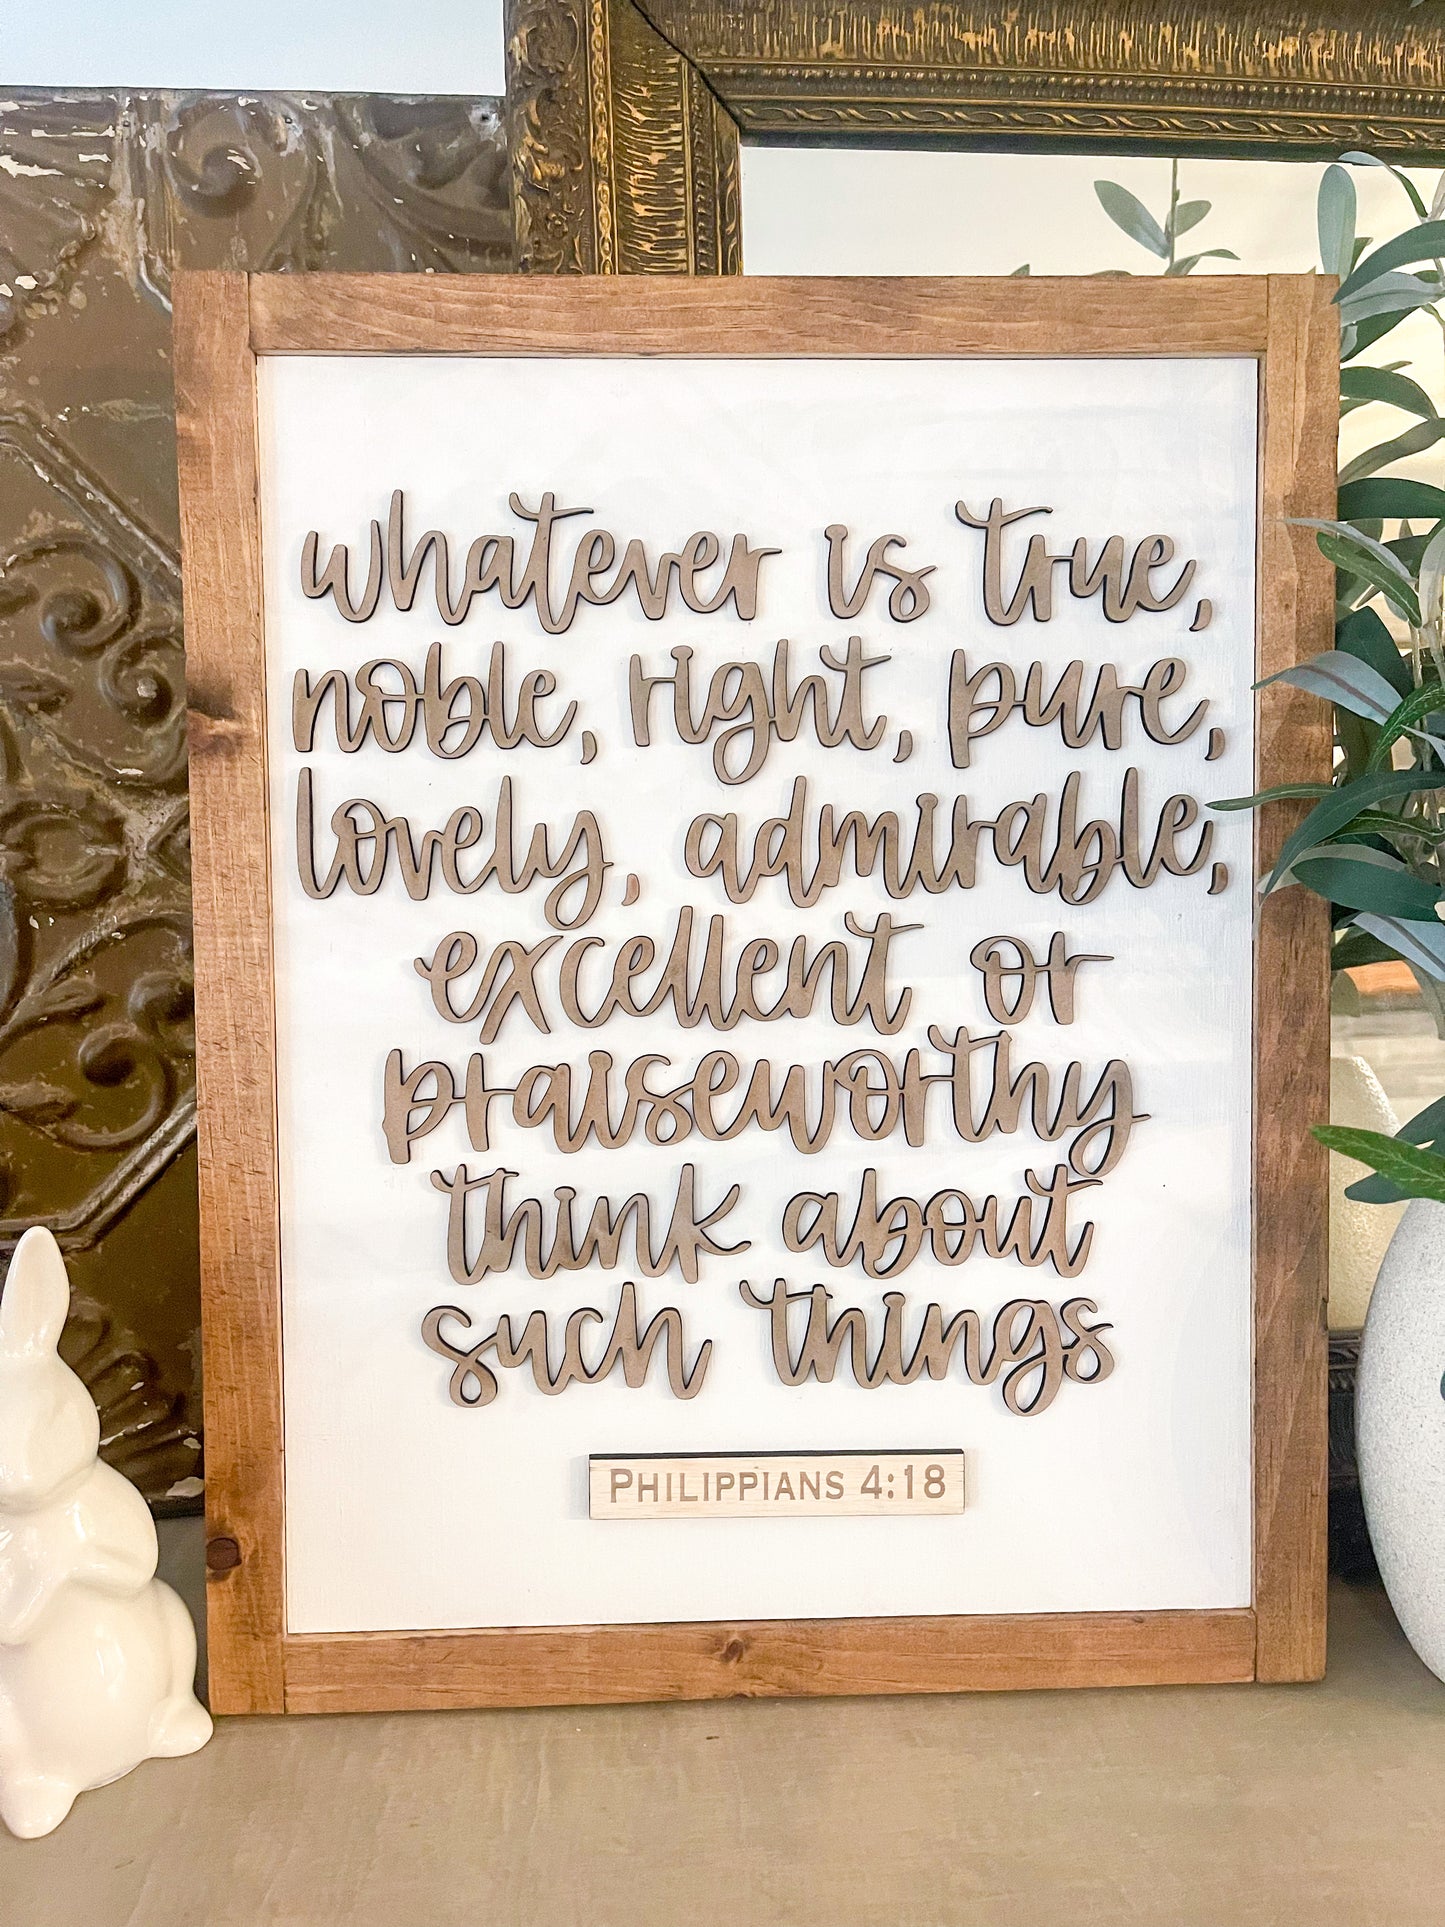 whatever is true,
noble, right, pure,
lovely, admirable,
excellent or
praiseworthy
think about
such things
PHILIPPIANS 4:18